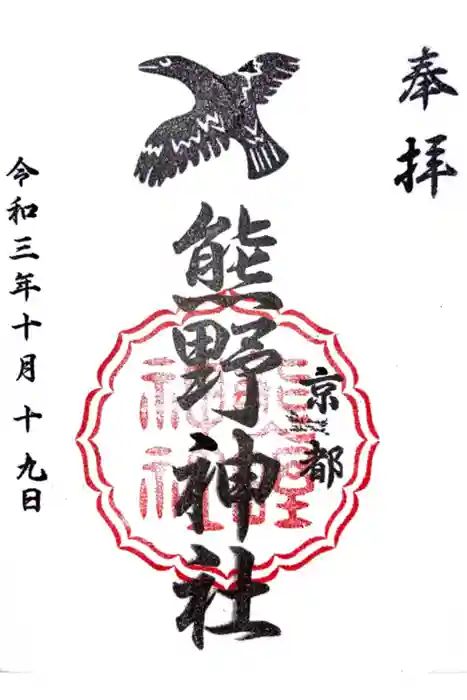 奉拝
京都
熊野神社
熊野神社
令和三年十月十九日